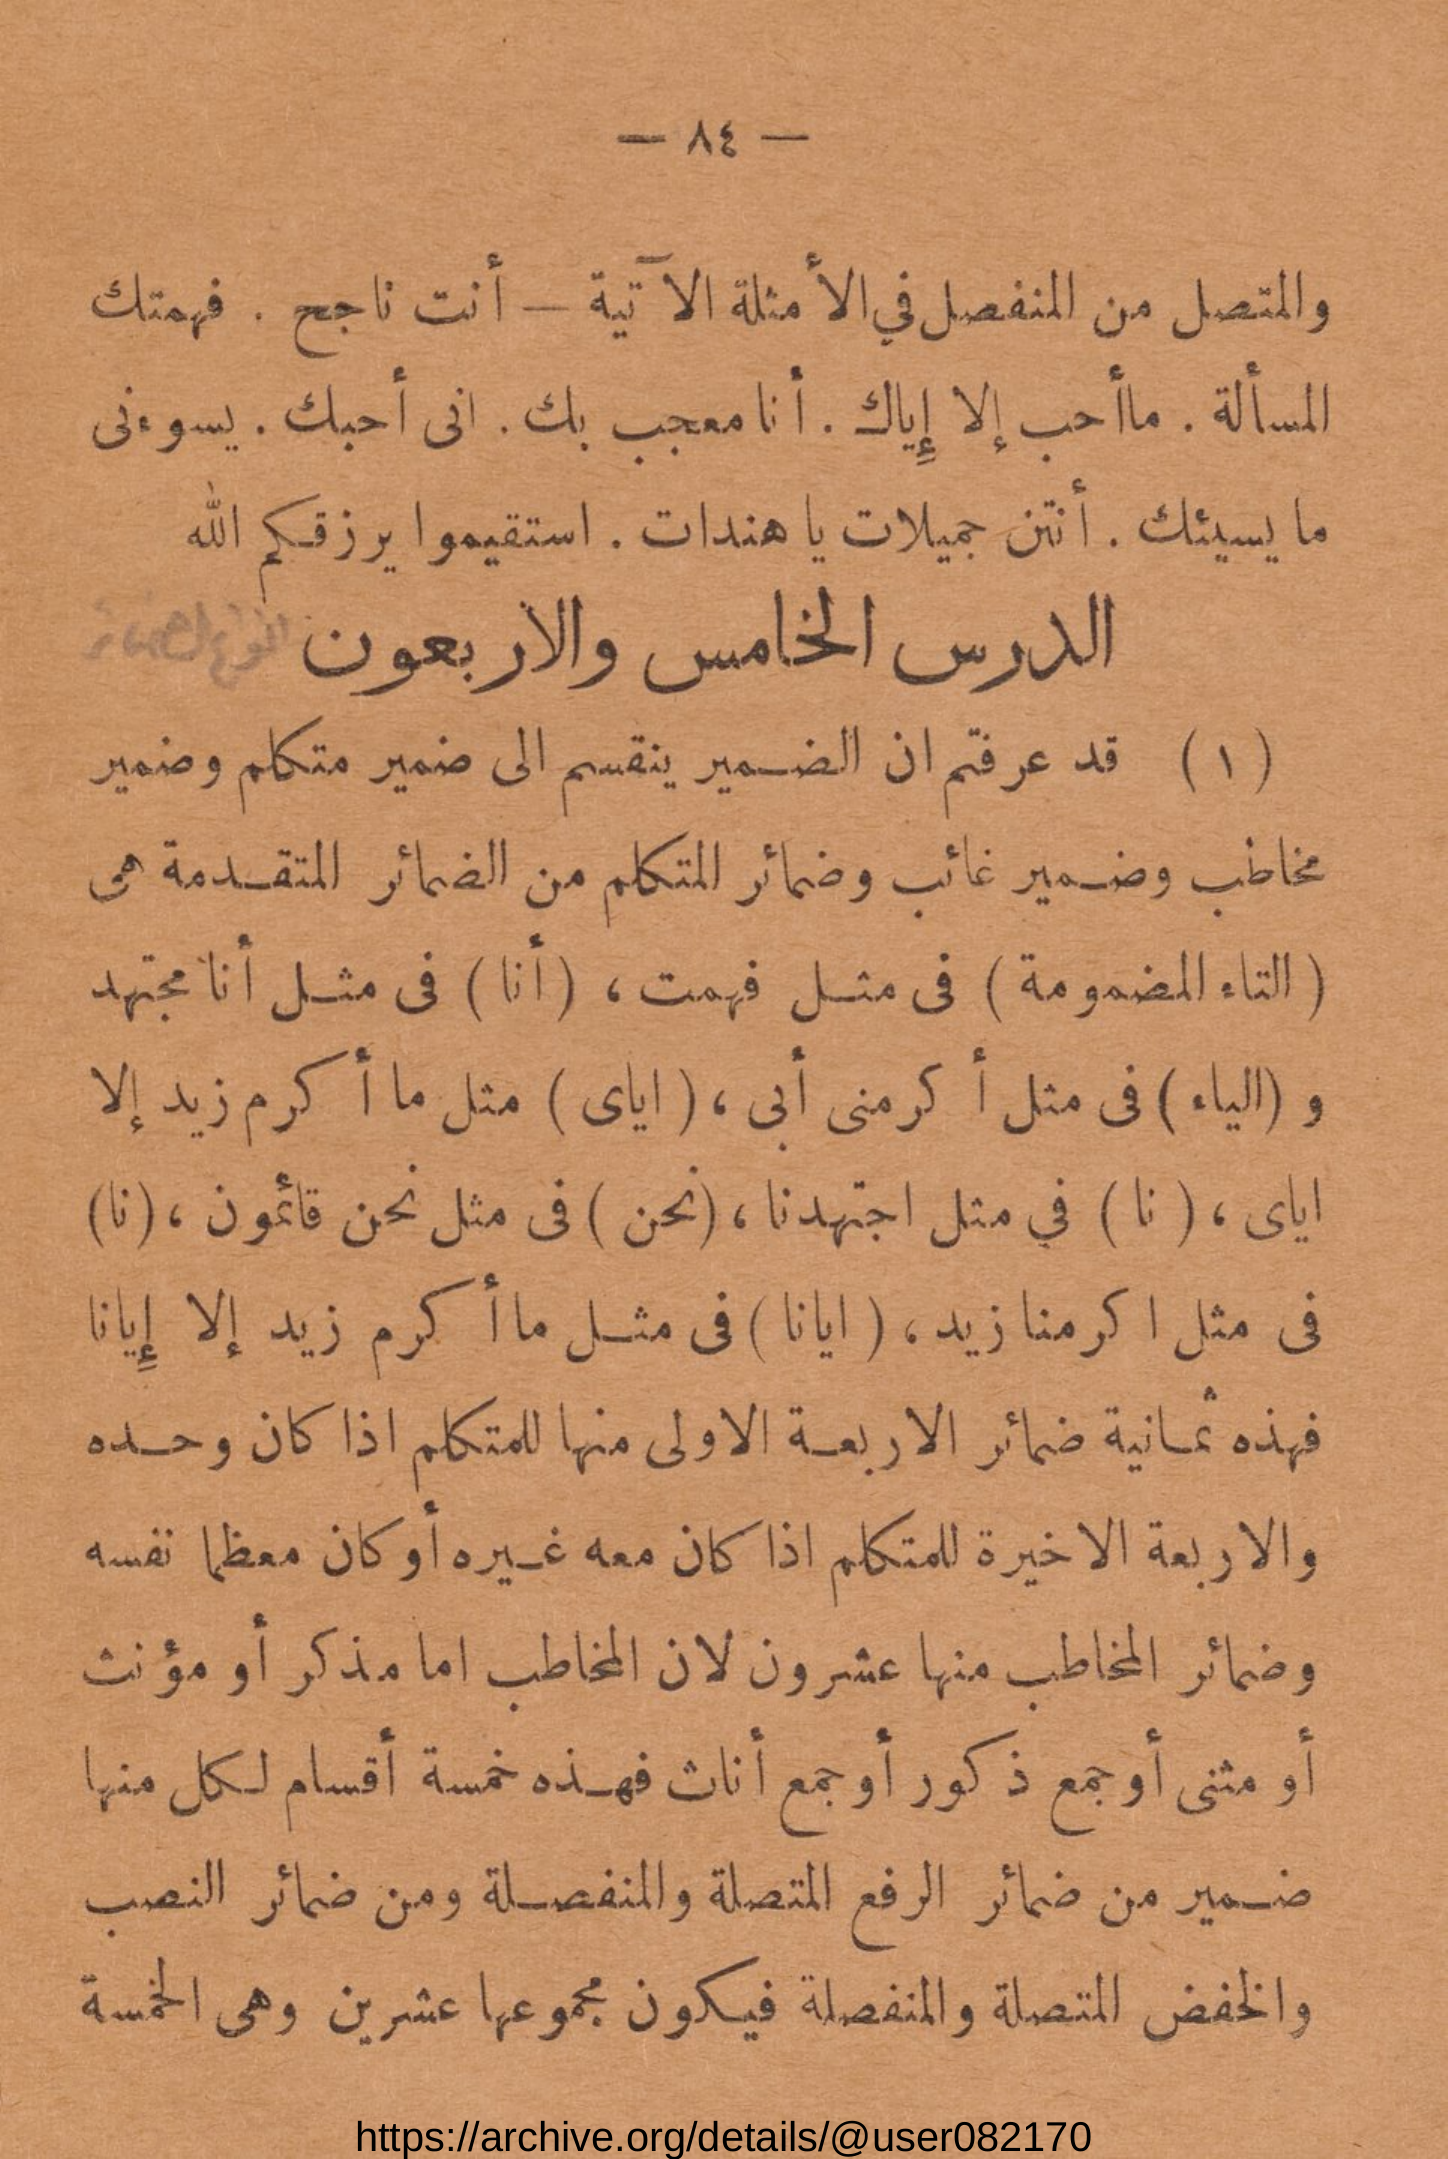 — ٨٤ —
والمتصل من المنفصل في الأمثلة الآتية — أنت ناجح . فهمتك
المسألة . ما أحب إلا إِياك . أنا معجب بك . انى أحبك . يسوءنى
ما يسيئك . أنتن جميلات يا هندات . استقيموا يرزقكم الله
الدرس الخامس والاربعون انواع الضمائر
( ١ ) قد عرفتم ان الضمير ينقسم الى ضمير متكلم وضمير
مخاطب وضمير غائب وضمائر المتكلم من الضمائر المتقدمة هى
( التاء المضمومة ) فى مثل فهمت ، ( أنا ) فى مثل أنا مجتهد
و (الياء ) فى مثل أكرمنى أبى ، ( اياى ) مثل ما أكرم زيد إلا
اياى ، ( نا ) في مثل اجتهدنا ، (نحن ) فى مثل نحن قائمون ، (نا)
فى مثل اكرمنا زيد ، ( ايانا ) فى مثل ما أكرم زيد إلا إِيانا
فهذه ثمانية ضمائر الاربعة الاولى منها للمتكلم اذا كان وحده
والاربعة الاخيرة للمتكلم اذا كان معه غيره أو كان معظما نفسه
وضمائر المخاطب منها عشرون لان المخاطب اما مذكر أو مؤنث
أو مثنى أو جمع ذكور أو جمع أناث فهذه خمسة أقسام لكل منها
ضمير من ضمائر الرفع المتصلة والمنفصلة ومن ضمائر النصب
والخفض المتصلة والمنفصلة فيكون مجموعها عشرين وهى الخمسة
https://archive.org/details/@user082170